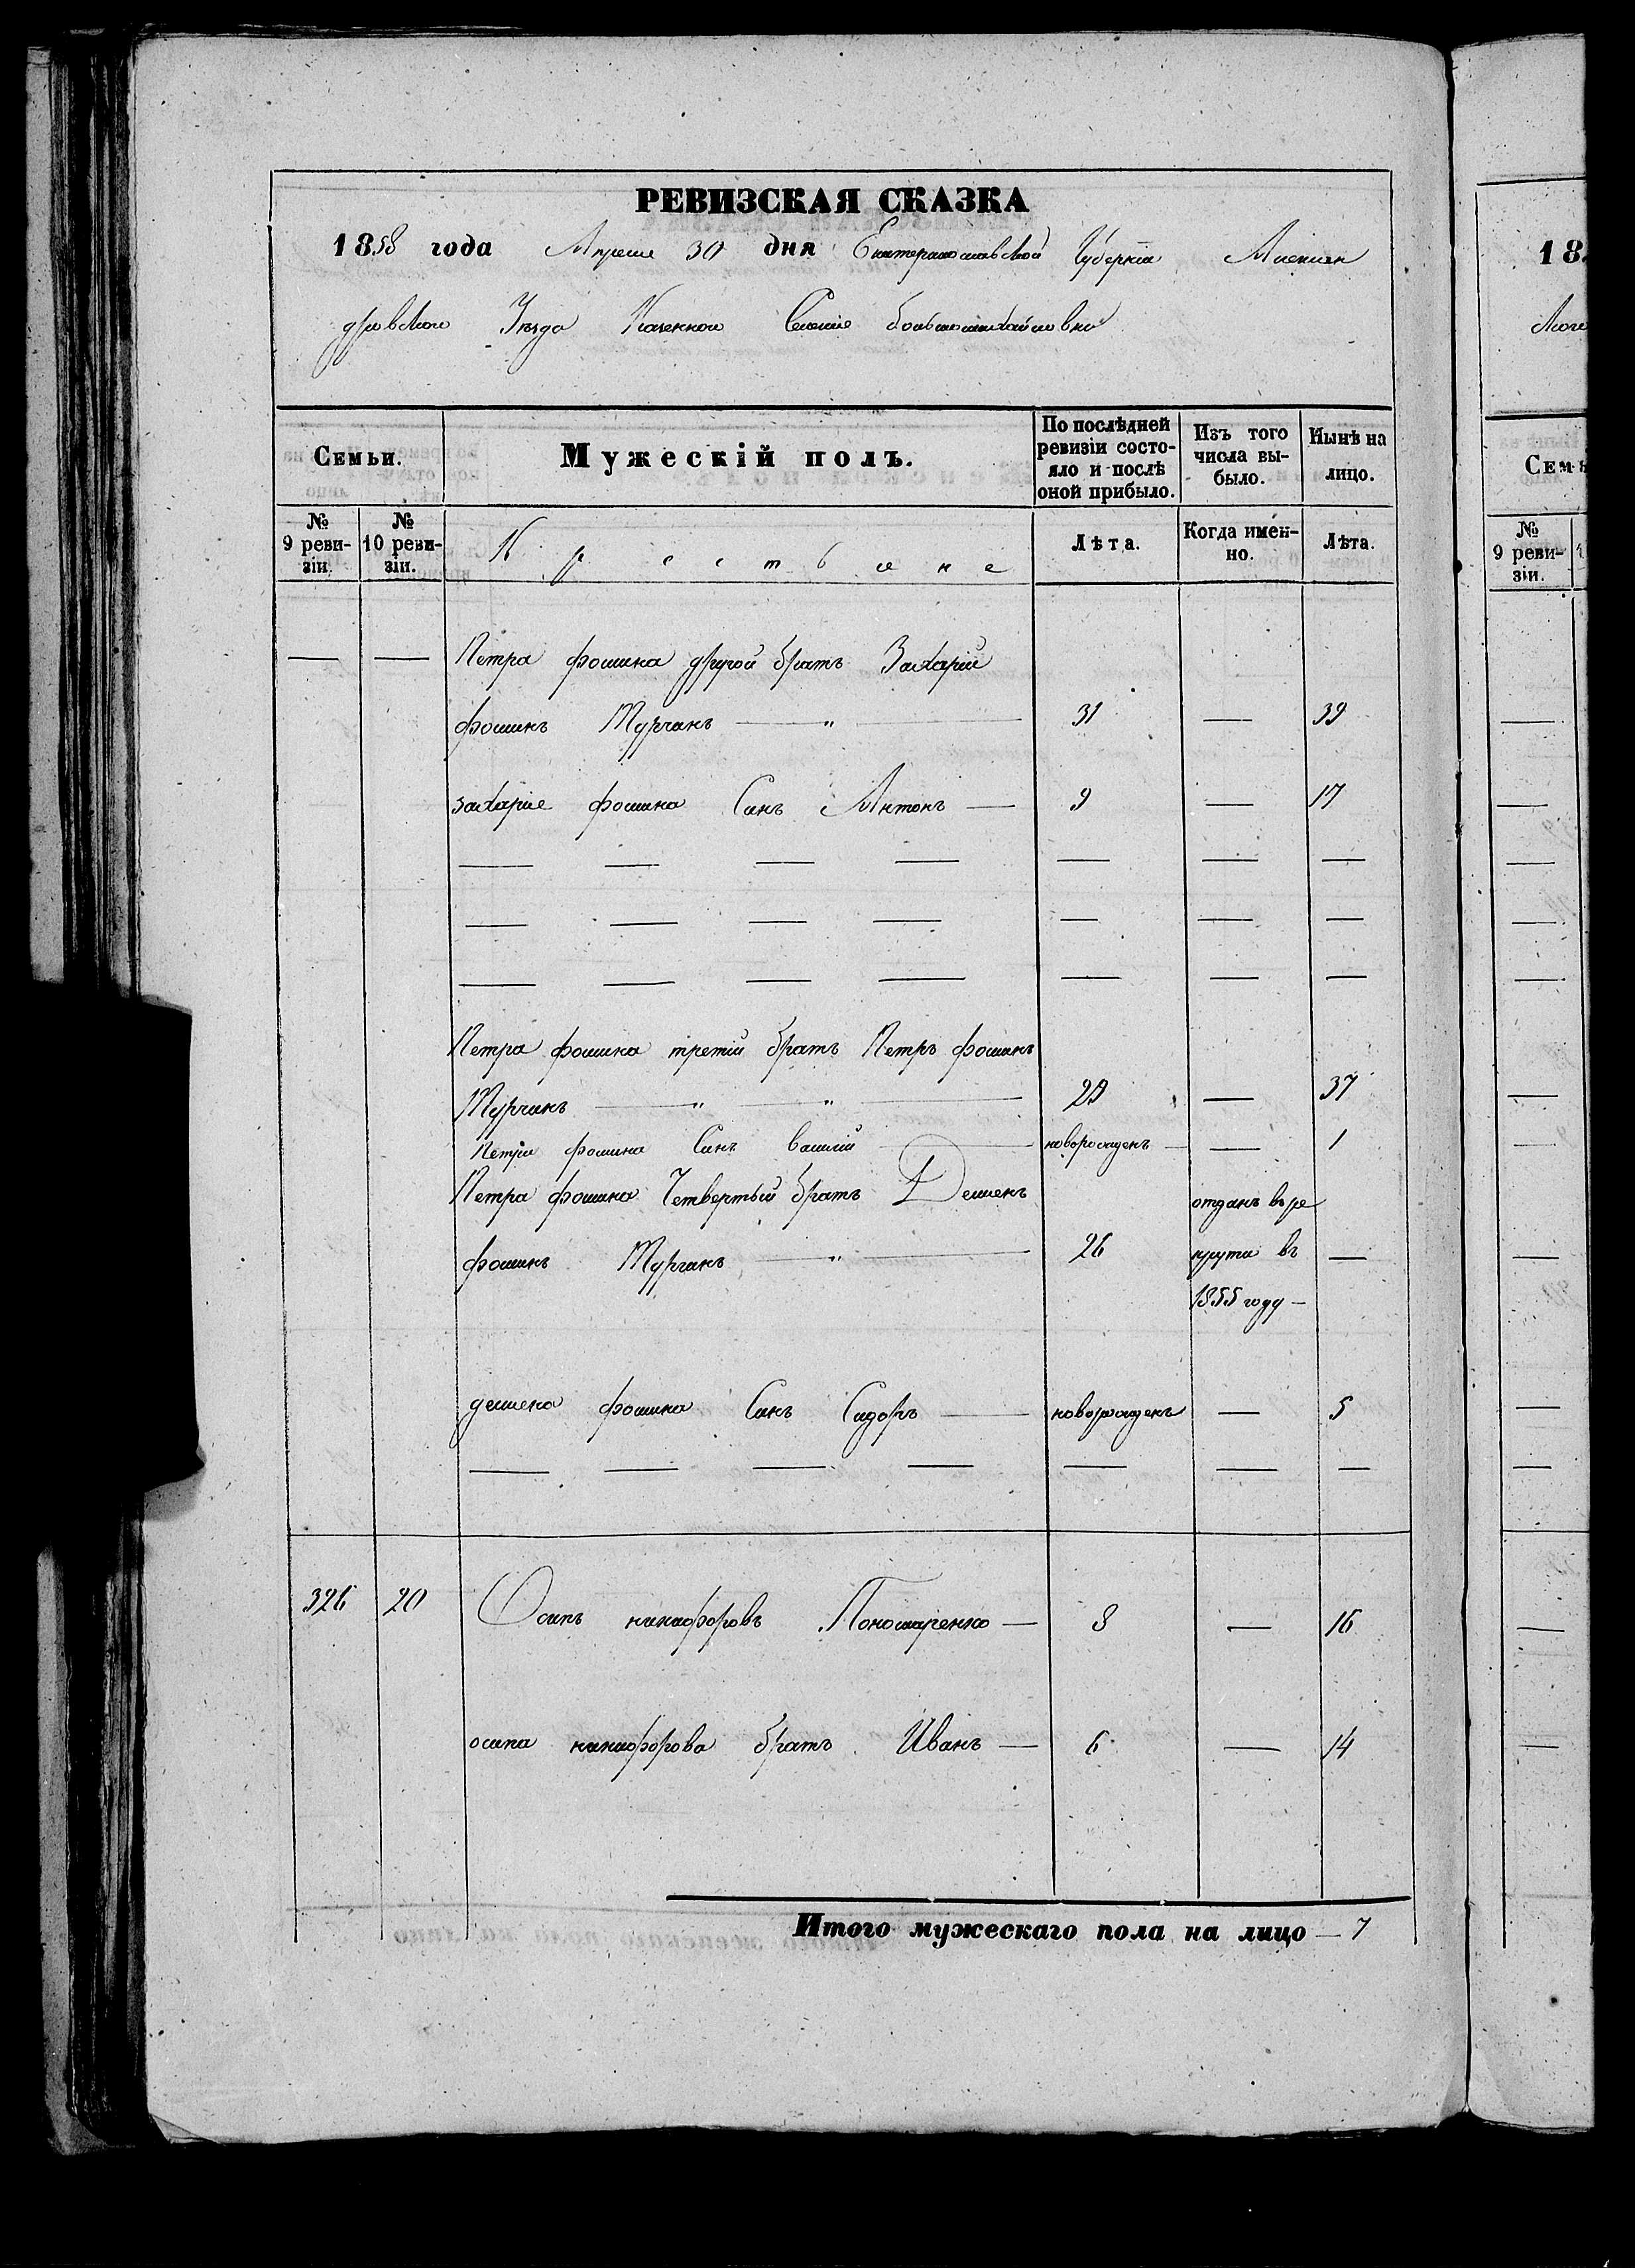 РЕВИЗСКАЯ СКАЗКА
1858 года Апреля 30 дня Екатеринославской Губернiи Алексан
дровского Уезда Казенного Селения большемихайловки
Семьи. Мужескiй полъ. По послѣдней ревизiи состо-яло и послѣ оной прибыло. Изъ того числа вы-было. Нынѣ на лицо.
№ 9 реви-зiи. № 10 реви-зiи. Крестьяне Лѣта. Когда имен-но. Лѣта.
— — Петра фомина другой братъ Захарiй
фоминъ Турчинъ — " — 31 — 39
захарiе фомина Синъ Антонъ — 9 — 17
— — — — — — —
— — — — — — —
— — — — — — —
Петра фомина третiй братъ Петръ фоминъ
Турчинъ — " — " — 29 — 37
Петра фомина Синъ васили — новорожденъ — — 1
Петра фомина Четвертый братъ Демиенъ отданъ въ ре
фоминъ Турчинъ — " — 26 круты въ —
1855 году —
демиена фомина Синъ Сидоръ — новорожденъ — 5
— — — — — — —
326 20 Осипъ никифоровъ Пономаренко — 8 — 16
осипа никифорова братъ Иванъ — 6 — 14
Итого мужескаго пола на лицо — 7
18
Семь
№ 9 реви-зiи.